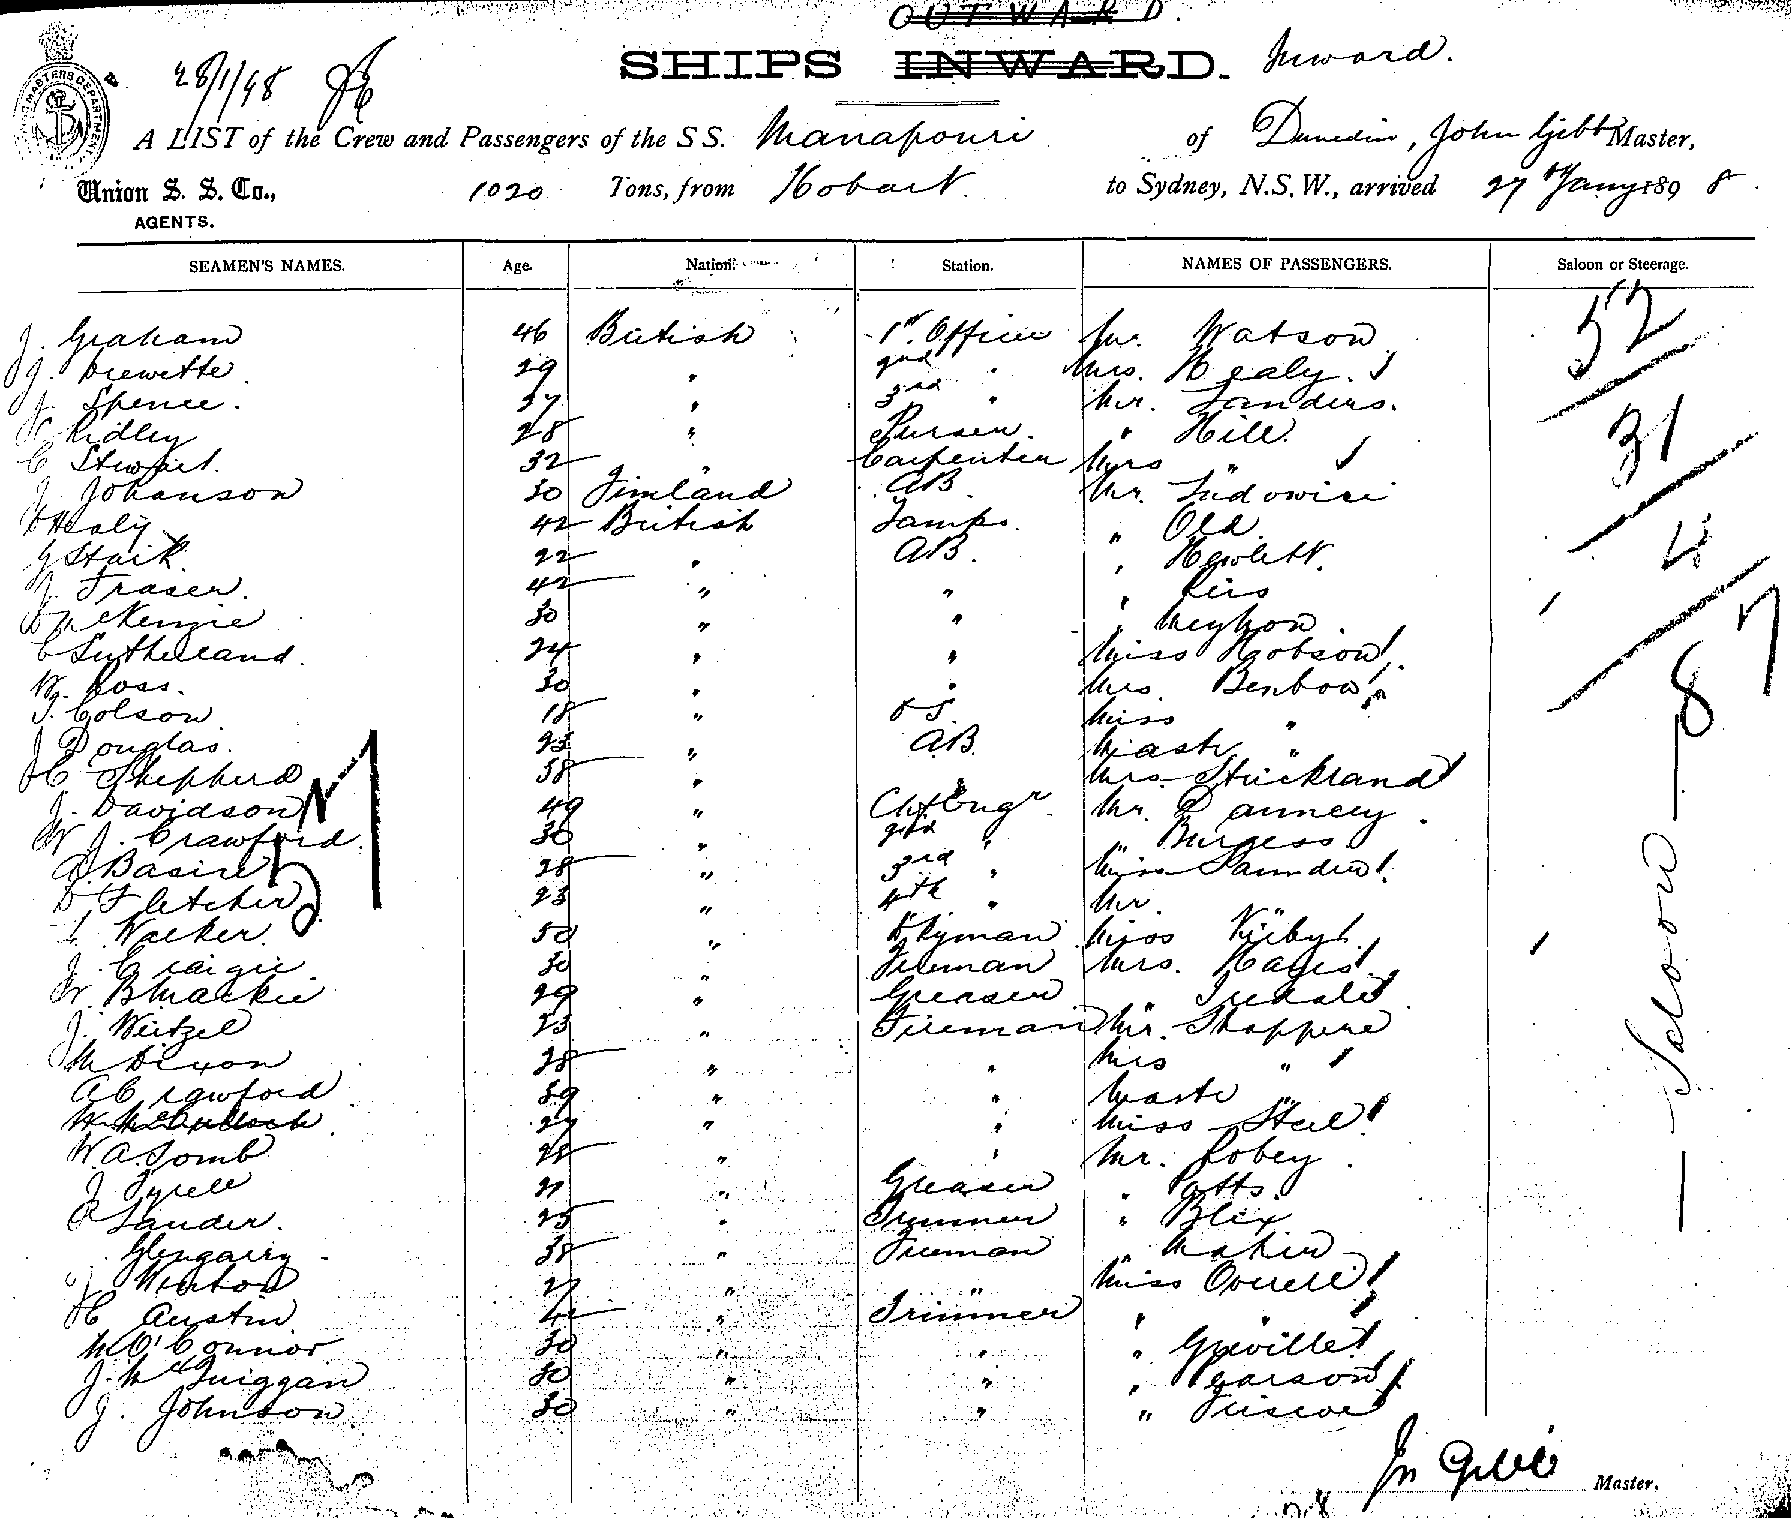 OUTWARD.
SHIPS INWARD. Inward.
28/1/98
MASTERS DEPARTMENT
A LIST of the Crew and Passengers of the SS. Manapouri of Dunedin, John Gibb Master,
Union S. S. Co., 1020 Tons, from Hobart to Sydney, N.S.W., arrived 27th Jany 1898.
AGENTS.
SEAMEN'S NAMES. Age. Nation. Station. NAMES OF PASSENGERS. Saloon or Steerage.
J. Graham 46 British 1st Officer Mr. Watson 52
J. Drewette 29 " 2nd " Mrs. Healy
J. Spence. 37 " 3rd " Mr. Sanders. 31
Ridley 28 " Purser. " Hill.
C Stewart. 32 " Carpenter Mrs " 4
J. Johanson 30 Finland AB Mr. Ludowici
Healy 42 British Lamps. " Old
G Stark 22 " AB. " Hewlett.
J. Fraser. 42 " " "
D McKenzie 30 " " "
C Sutherland. 24 " " Miss Hobson 87
W. Ross. 30 " " Mrs. Benbow
J. Colson 18 " OS. Miss "
J Douglas. 23 " AB. Mast "
H C Shepherd 58 " " Mrs Strickland
J. Davidson 49 " Chf Engr Mr. Dannery
W J. Crawford. 30 " 2nd " " Burgess
Basire 28 " 3rd " Miss Saunders
D Fletcher 23 " 4th " Mr. "
Walker. 50 " Dkyman Miss Kirby
J. Craigie. 30 " Fireman Mrs. Hayes
W. B Mackie 29 " Greaser " Iredale
J. Weitzel 23 " Fireman Mr. Shoppere
M Dixon 28 " " Mrs "
A Crawford 39 " " Mast "
W. McCulloch 27 " " Miss Steel
W. A. Lomb 28 " " Mr. Robey.
J Tyrell 21 " Greaser " Potts.
Lauder. 25 " Trimmer " Blix
Glengarry 38 " Fireman "
J Newton 27 " " Miss Overell
H C Austin 42 " Trimmer " "
M O'Connor 30 " " " Greville
J. McGuiggan 30 " " " Pearson
J. Johnson 30 " " " Briscoe
51
— Saloon — 8
Jn Gibb Master.
28